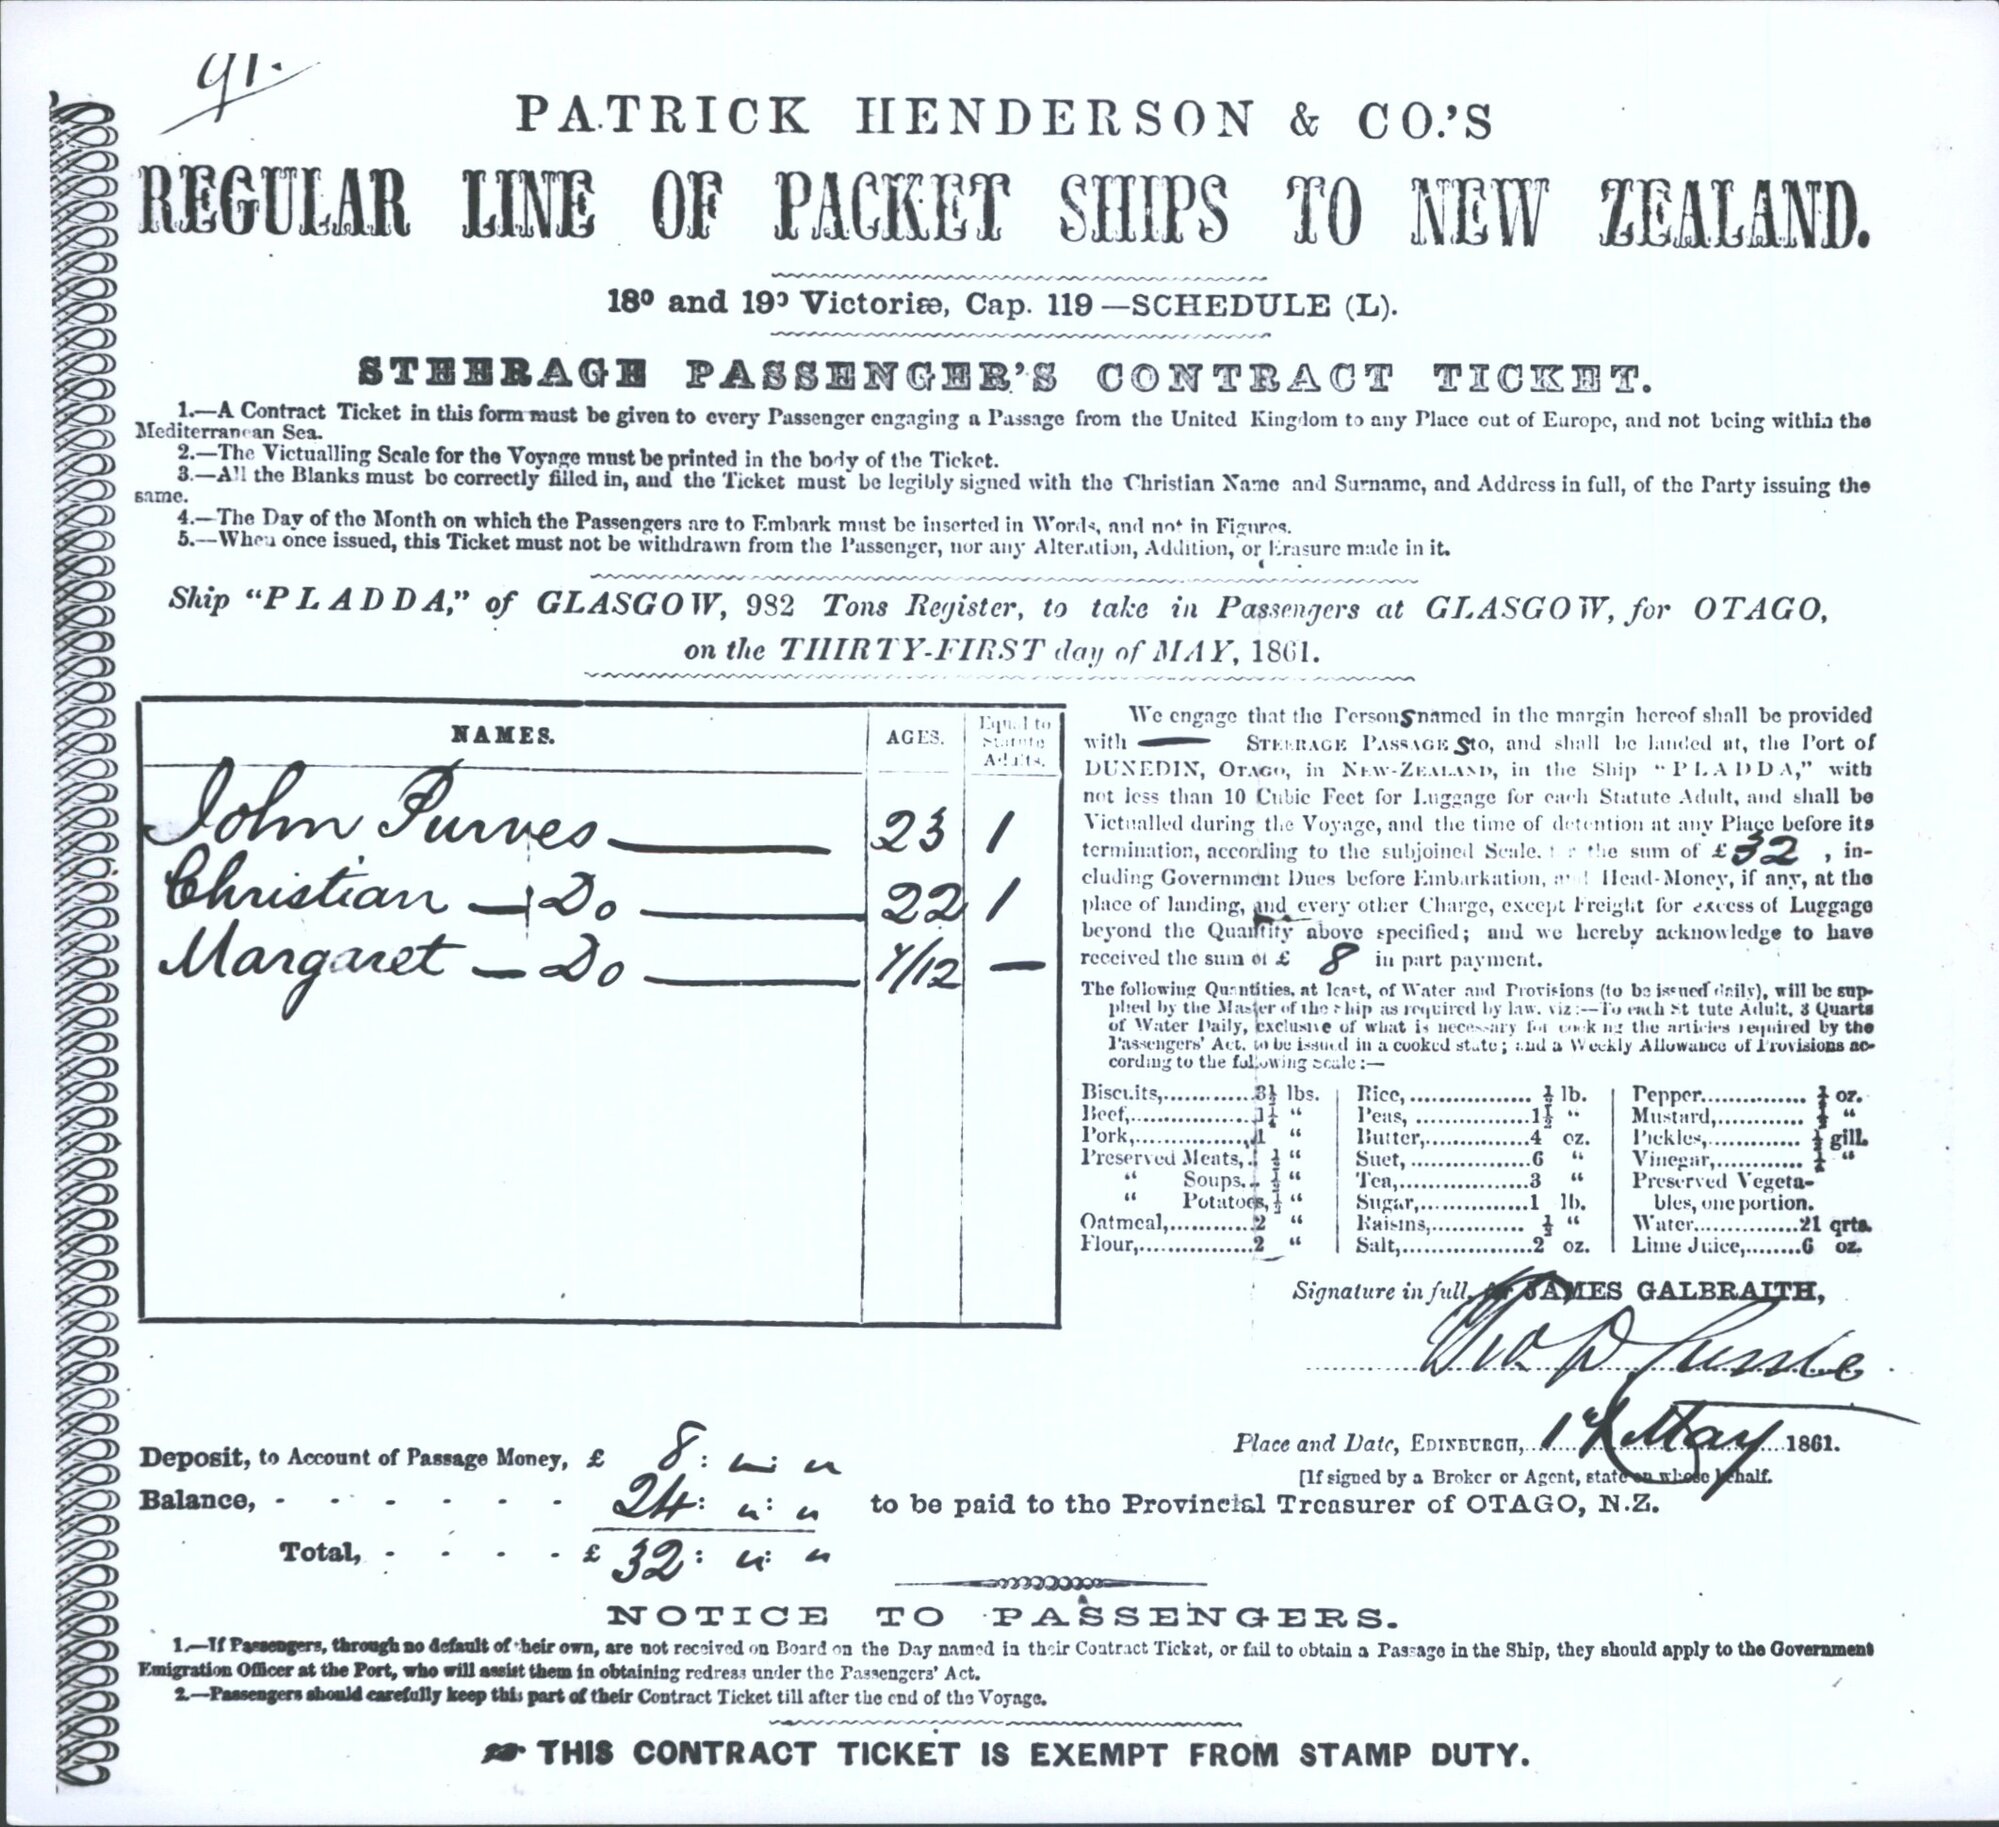 91.
PATRICK HENDERSON & CO.'S
REGULAR LINE OF PACKET SHIPS TO NEW ZEALAND.
18º and 19º Victoriæ, Cap. 119—SCHEDULE (L).
STEERAGE PASSENGER'S CONTRACT TICKET.
1.—A Contract Ticket in this form must be given to every Passenger engaging a Passage from the United Kingdom to any Place out of Europe, and not being within the
Mediterranean Sea.
2.—The Victualling Scale for the Voyage must be printed in the body of the Ticket.
3.—All the Blanks must be correctly filled in, and the Ticket must be legibly signed with the Christian Name and Surname, and Address in full, of the Party issuing the
same.
4.—The Day of the Month on which the Passengers are to Embark must be inserted in Words, and not in Figures.
5.—When once issued, this Ticket must not be withdrawn from the Passenger, nor any Alteration, Addition, or Erasure made in it.
Ship "PLADDA," of GLASGOW, 982 Tons Register, to take in Passengers at GLASGOW, for OTAGO,
on the THIRTY-FIRST day of MAY, 1861.
NAMES. AGES. Equal to Statute Adults.
John Purves 23 1
Christian — Do 22 1
Margaret — Do /12 —
We engage that the Persons named in the margin hereof shall be provided
with — STEERAGE PASSAGES to, and shall be landed at, the Port of
DUNEDIN, OTAGO, in NEW-ZEALAND, in the Ship "PLADDA," with
not less than 10 Cubic Feet for Luggage for each Statute Adult, and shall be
Victualled during the Voyage, and the time of detention at any Place before its
termination, according to the subjoined Scale, for the sum of £32, in-
cluding Government Dues before Embarkation, and Head-Money, if any, at the
place of landing, and every other Charge, except Freight for excess of Luggage
beyond the Quantity above specified; and we hereby acknowledge to have
received the sum of £ 8 in part payment.
The following Quantities, at least, of Water and Provisions (to be issued daily), will be sup-
plied by the Master of the Ship as required by law, viz:—To each Statute Adult, 3 Quarts
of Water Daily, exclusive of what is necessary for cooking the articles required by the
Passengers' Act, to be issued in a cooked state; and a Weekly Allowance of Provisions ac-
cording to the following Scale:—
Biscuits,............3½ lbs.
Beef,................1¼ "
Pork,................1 "
Preserved Meats,.. ½ "
" Soups,.. ½ "
" Potatoes, ½ "
Oatmeal,............2 "
Flour,................2 "
Rice,................ ½ lb.
Peas, ...............1½ "
Butter,.............4 oz.
Suet, ................6 "
Tea,..................3 "
Sugar,...............1 lb.
Raisins,............. ½ "
Salt,..................2 oz.
Pepper............... ½ oz.
Mustard,............ ½ "
Pickles,............. ½ gill.
Vinegar,............ ½ "
Preserved Vegeta-
bles, one portion.
Water...............21 qrts.
Lime Juice,........6 oz.
Signature in full, JAMES GALBRAITH,
Place and Date, EDINBURGH, 1st May 1861.
[If signed by a Broker or Agent, state on whose behalf.
Deposit, to Account of Passage Money, £ 8 : " : "
Balance, - - - - - - 24 : " : " to be paid to the Provincial Treasurer of OTAGO, N.Z.
Total, - - - - £ 32 : " : "
NOTICE TO PASSENGERS.
1.—If Passengers, through no default of their own, are not received on Board on the Day named in their Contract Ticket, or fail to obtain a Passage in the Ship, they should apply to the Government
Emigration Officer at the Port, who will assist them in obtaining redress under the Passengers' Act.
2.—Passengers should carefully keep this part of their Contract Ticket till after the end of the Voyage.
☞ THIS CONTRACT TICKET IS EXEMPT FROM STAMP DUTY.